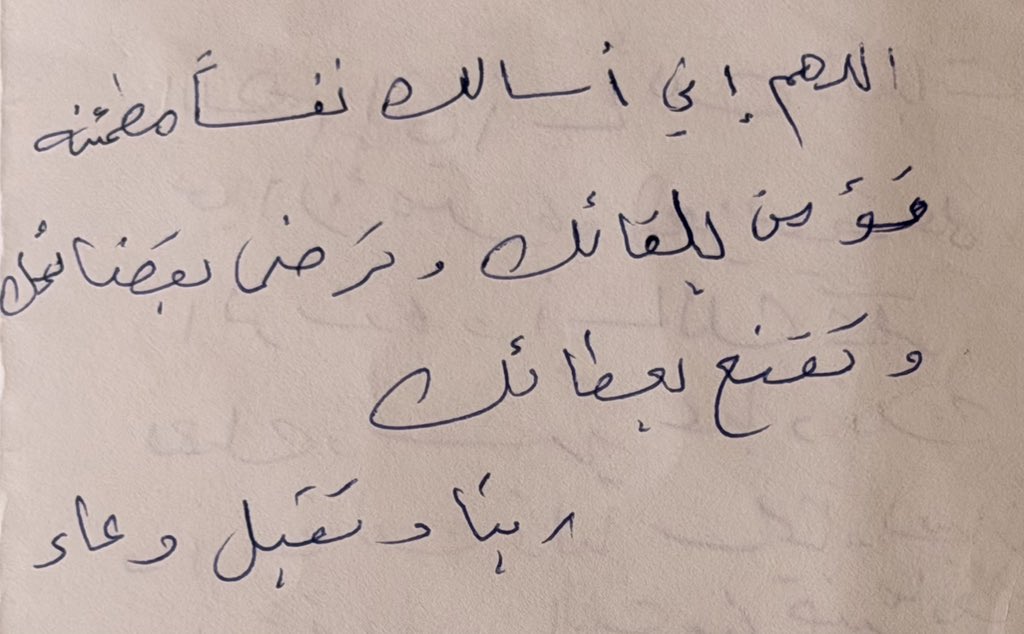 اللهم إني أسالك نفساً مطمئنة
تؤمن بلقائك وترضى بقضائك
وتقنع بعطائك
ربنا وتقبل دعاء